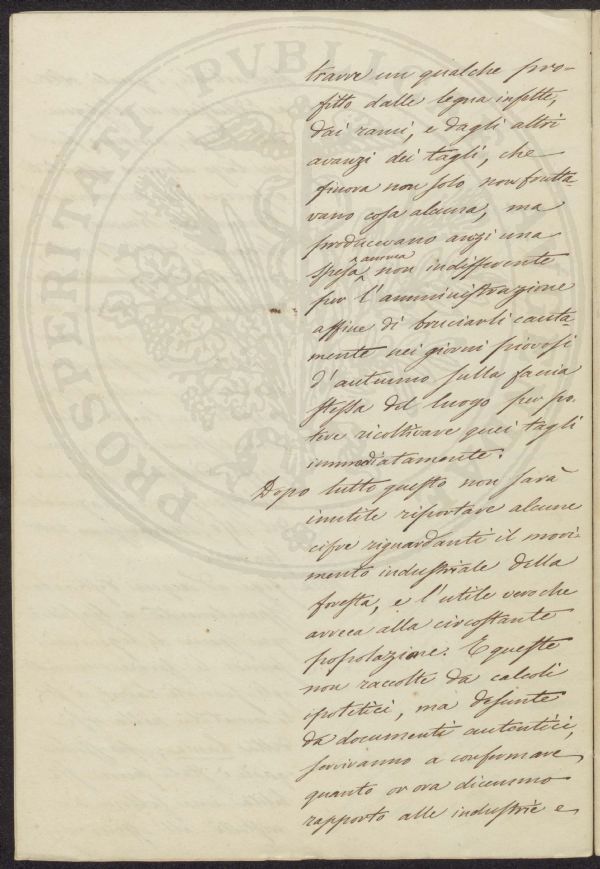 PROSPERITATI PVBLIC
trarre un qualche pro-
fitto dalle legna infette,
dai rami, e dagli altri
avanzi dei tagli, che
finora non solo non frutta-
vano cosa alcuna, ma
producevano anzi una
spesa ^ annua non indifferente
per l'amministrazione
affine di bruciarli cauta-
mente nei giorni piovosi
d'autunno sulla faccia
stessa del luogo per po-
tere ricoltivare quei tagli
immediatamente.
Dopo tutto questo non sarà
inutile riportare alcune
cifre riguardanti il movi-
mento industriale della
foresta, e l'utile vero che
arreca alla circostante
popolazione. E queste
non raccolte da calcoli
ipotetici, ma desunte
da documenti autentici,
serviranno a confermare
quanto or ora dicemmo
rapporto alle industrie e